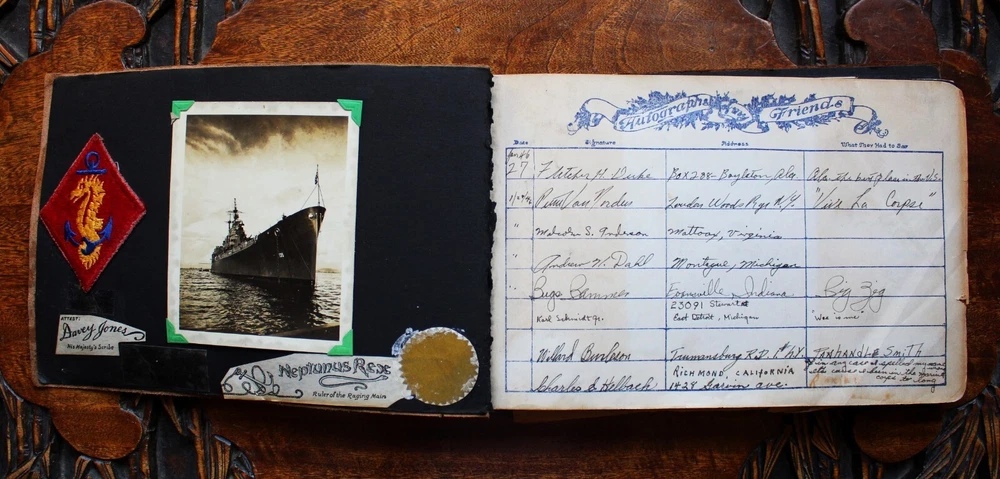 ATTEST:
Davey Jones
His Majesty's Scribe
Neptunus Rex
Ruler of the Raging Main
Autographs of My Friends
Date Signature Address What They Had to Say
Jan 46
27 Fletcher H. Duke Box 288- Boylston, Ala. Ala. the best place in the U.S.
1/27/46 N.Y. "Vive La Corpse"
" Malcolm S. Anderson Mattoax, Virginia
" Andrew W. Dahl Montague, Michigan
" Bugs Sammes Evansville, Indiana Zig Zag
23091 Stewart
Karl Schmidt Jr. East Detroit, Michigan "Woe is me"
Willard Burleson Trumansburg R.D. 1 N.Y. FOXHANDLE SMITH
RICHMOND, CALIFORNIA
Charles E Helback 1428 Garvin ave. corps to long